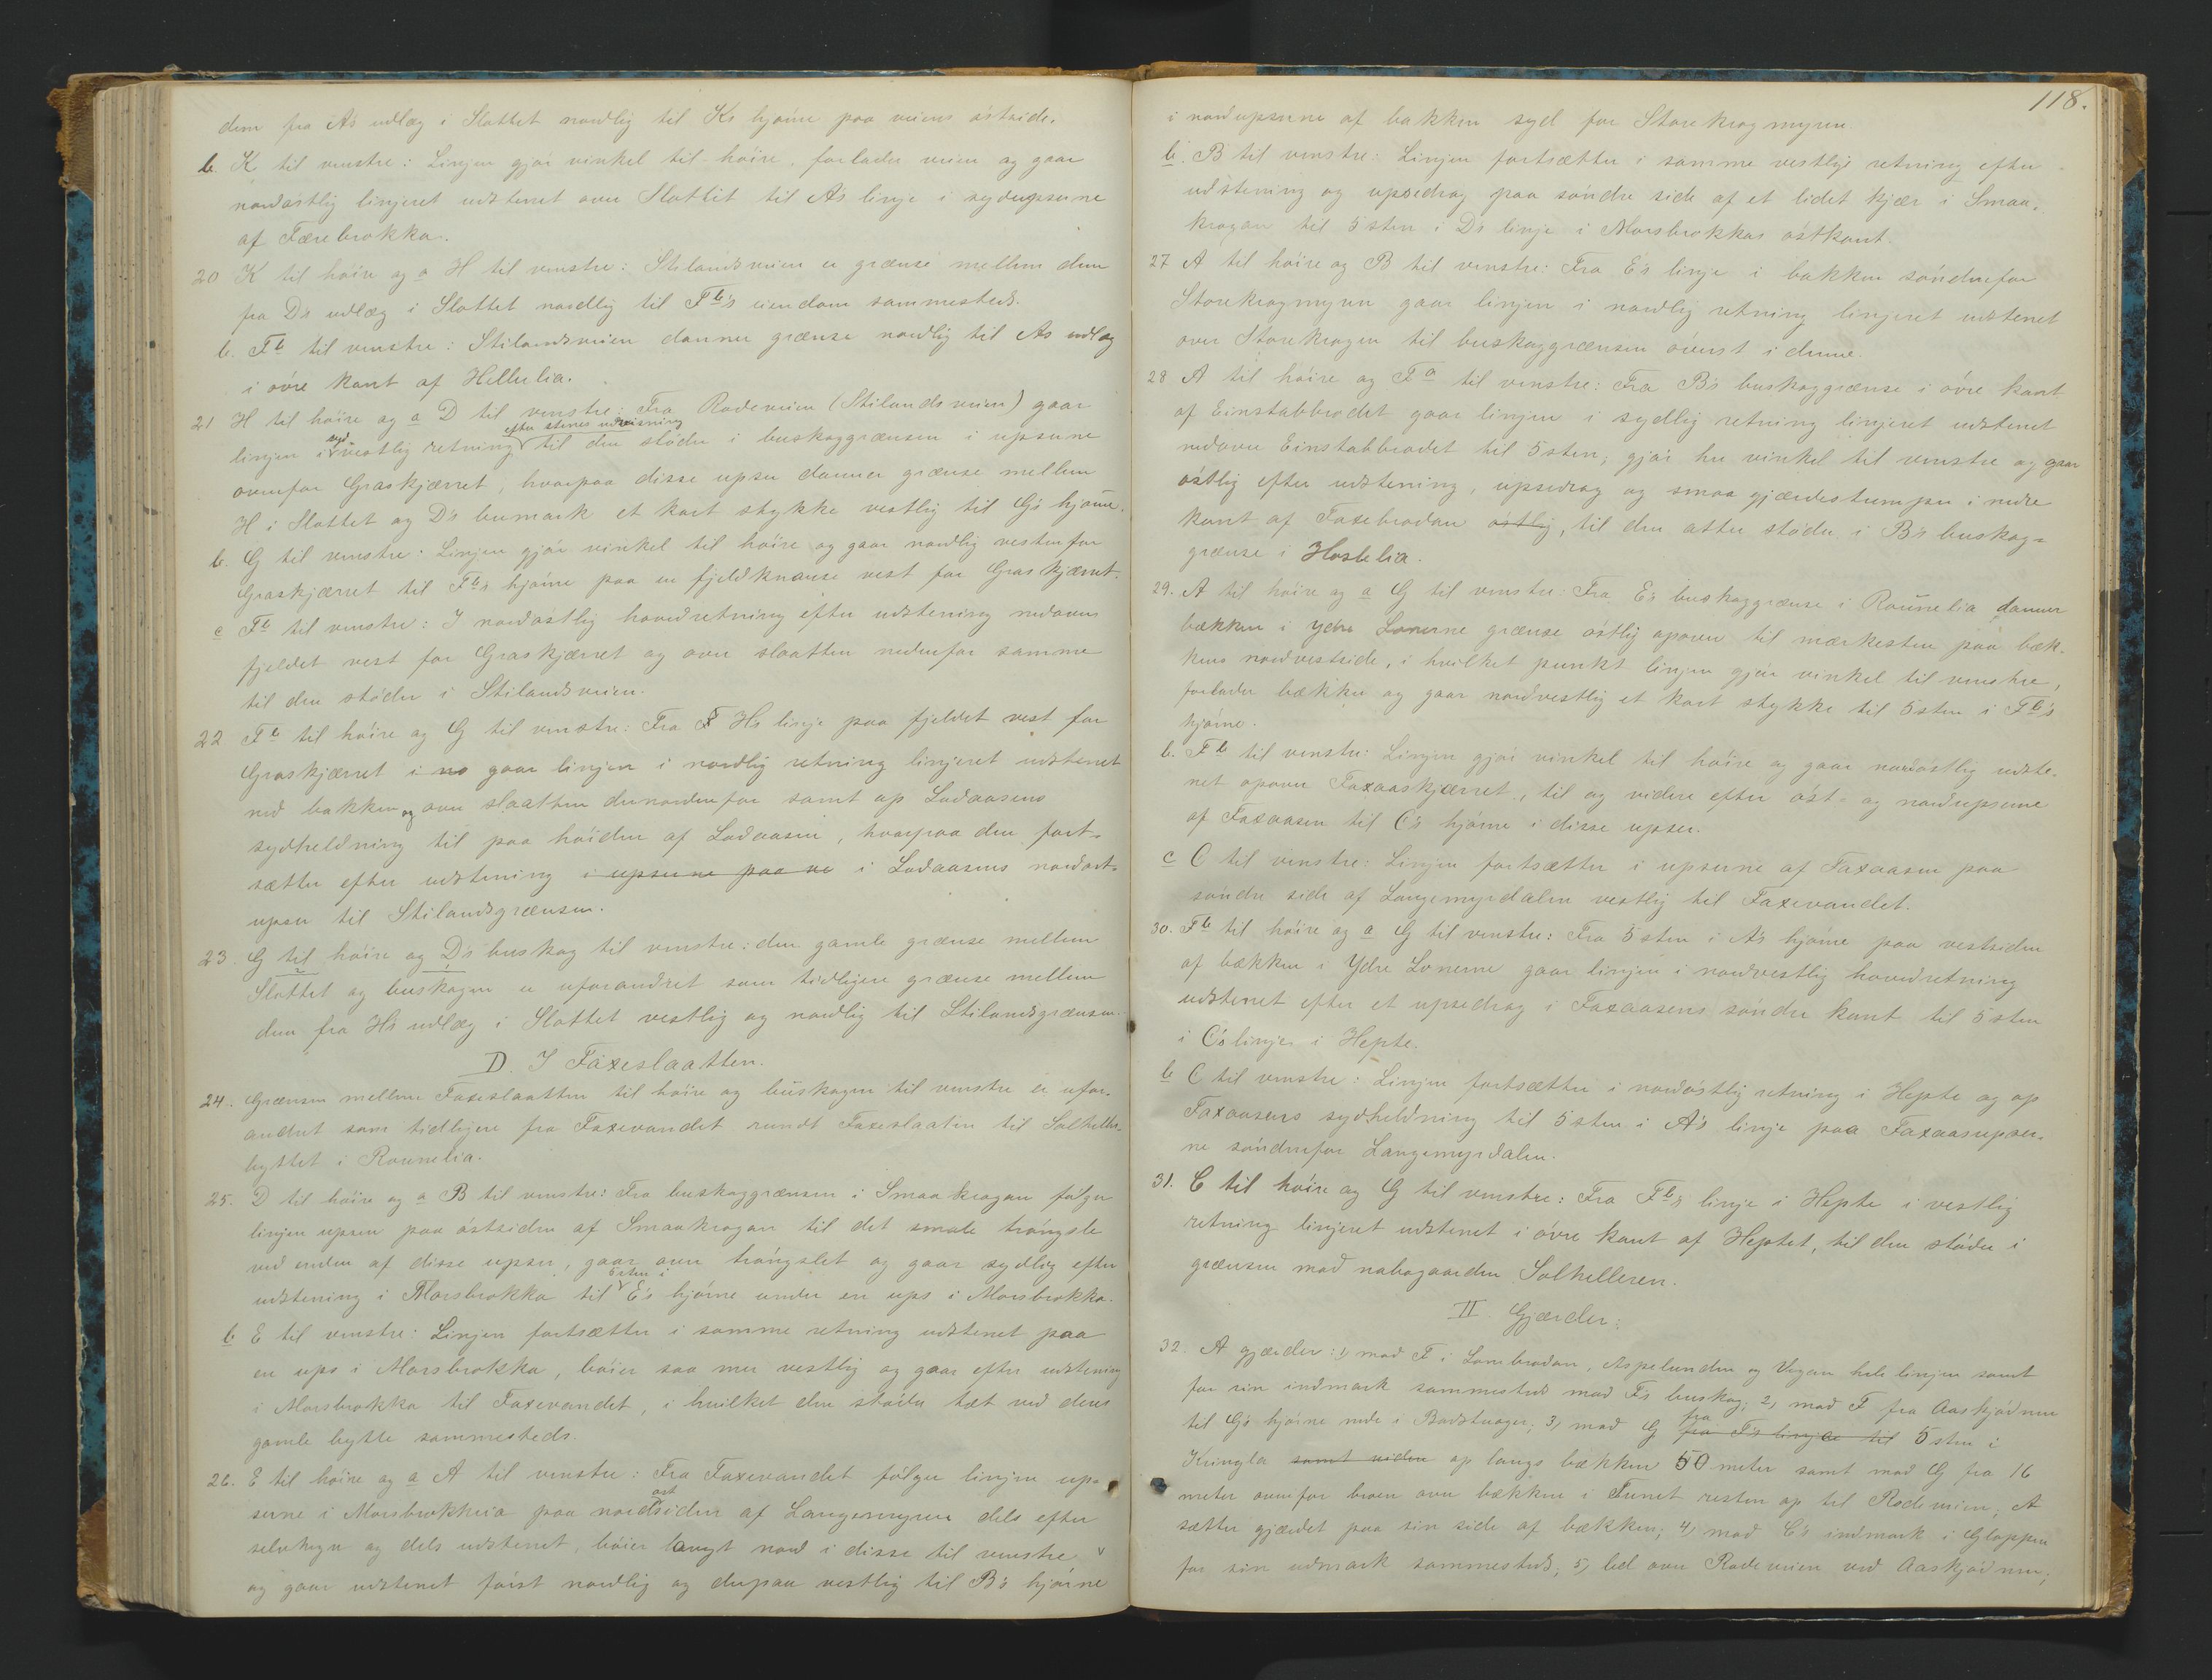 dem fra A's udlæg i Slottet nordlig til K's hjørne paa veiens østside.
b. K til venstre: Linjen gjør vinkel til høire, forlader veien og gaar
nordøstlig linjeret udstenet over Slottet til A's linje i sydupserne
af Færebrokka.
20 K til høire og a H til venstre: Stilandsveien er grænse mellem dem
fra D's udlæg i Slottet nordlig til Fb's eiendom sammesteds.
b. Fb til venstre: Stilandsveien danner grænse nordlig til As udlæg
i øvre kant af Hellulia.
21 H til høire og a D til venstre: Fra Rodeveien (Stilandsveien) gaar
linjen i syd-vestlig retning efter stenes udvisning til den støder i buskoggrænsen i upsene
ovenfor Graskjærret, hvorpaa disse upser danner grænse mellem
H i Slottet og D's bumark et kort stykke vestlig til G's hjørne.
b. G til venstre: Linjen gjør vinkel til høire og gaar nordlig vestenfor
Graskjærret til Fb's hjørne paa en fjeldknause vest for Graskjærret.
c Fb til venstre: I nordøstlig hovedretning efter udstening nedover
fjeldet vest for Graskjærret og over slaatten nedenfor samme
til den støder i Stilandsveien.
22. Fb til høire og G til venstre: Fra F Hs linje paa fjeldet vest for
Graskjærret i no gaar linjen i nordlig retning linjeret udstenet
ned bakken og over slaatten dernordenfor samt op Ladaasens
sydheldning til paa høiden af Ladaasen, hvorpaa den fort-
sætter efter udstening i upserne paa ve i Ladaasens nordøst-
upser til Stilandsgrænsen.
23. G til høire og D's buskog til venstre: den gamle grænse mellem
Slottet og buskogen er uforandret som tidligere grænse mellem
dem fra H's udlæg i Slottet vestlig og nordlig til Stilandsgrænsen.
D. I Faxeslaatten.
24. Grænsen mellem Faxeslaatten til høire og buskogen til venstre er ufor-
andret som tidligere fra Faxevandet rundt Faxeslaatten til Solheller-
byttet i Rounelia.
25. D til høire og a B til venstre: Fra buskoggrænsen i Smaakrogan følger
linjen upsen paa østsiden af Smaakrogan til det smale trøngsle
ved enden af disse upser, gaar over trøngslet og gaar sydlig efter
udstening i Morsbrokka til 5sten i E's hjørne under en ups i Morsbrokka.
b E til venstre: Linjen fortsætter i samme retning udstenet paa
en ups i Morsbrokka, bøier saa mer vestlig og gaar efter udstening
i Morsbrokka til Faxevandet, i hvilket den støder tæt ved deres
gamle bytte sammesteds.
26. E til høire og a A til venstre: Fra Faxevandet følger linjen up-
serne i Morsbrokkeia paa nordøstsiden af Langemyren dels efter
selvhegn og dels udstenet, bøier langt nord i disse til venstre
og gaar udstenet først nordlig og derpaa vestlig til B's hjørne
118.
i nordupserne af bakken syd for Storekrogmyren.
b. B til venstre: Linjen fortsætter i samme vestlige retning efter
udstening og upsedrag paa søndre side af et lidet kjær i Smaa-
krogan til 5sten i D's linje i Morsbrokkas østkant.
27 A til høire og B til venstre: Fra E's linje i bakken søndenfor
Storekrogmyren gaar linjen i nordlig retning linjeret udstenet
over Storekrogen til buskoggrænsen øverst i denne.
28 A til høire og Fa til venstre: Fra B's buskoggrænse i øvre kant
af Einstabbrodet gaar linjen i sydlig retning linjeret udstenet
nedover Einstabbrodet til 5sten, gjør her vinkel til venstre og gaar
østlig efter udstening, upsedrag og smaa gjærdestumper i nedre
kant af Faxebrodan østlig, til den atter støder i B's buskog-
grænse i Hoslelia.
29. A til høire og a G til venstre: Fra E's buskoggrænse i Rounelia danner
bækken i Ydre Lonerne grænse østlig opover til mærkesten paa bæk-
kens nordvestside, i hvilket punkt linjen gjør vinkel til venstre,
forlader bækken og gaar nordvestlig et kort stykke til 5sten i Fb's
hjørne.
b. Fb til venstre: Linjen gjør vinkel til høire og gaar nordøstlig udste-
net opover Faxaaskjærret, til og videre efter øst- og nordupserne
af Faxaasen til C's hjørne i disse upser.
c C til venstre: Linjen fortsætter i upserne af Faxaasen paa
søndre side af Langemyrdalen vestlig til Faxevandet.
30. Fb til høire og a G til venstre: Fra 5sten i A's hjørne paa vestsiden
af bækken i Ydre Lonerne gaar linjen i nordvestlig hovedretning
udstenet efter et upsedrag i Faxaasens søndre kant til 5sten
i C's linje i Hepte.
b C til venstre: Linjen fortsætter i nordøstlig retning i Hepte og op
Faxaasens sydheldning til 5sten i A's linje paa Faxaasupser-
ne søndenfor Langemyrdalen.
31. C til høire og G til venstre: Fra Fb's linje i Hepte i vestlig
retning linjeret udstenet i øvre kant af Heptet, til den støder i
grænsen mod nabogaarden Solhelleren.
II. Gjærder:
32. A gjærder: 1, mod F i Lonebrodan, Aspelunden og Vegen hele linjen samt
for sin indmark sammesteds mod F's buskog; 2, mod F fra Aaskjødnen
til G's hjørne nede i Badstuager; 3, mod G fra F's linje til fra 5sten i
Kringla samt videre op langs bækken 50 meter samt mod G fra 16
meter ovenfor broen over bækken i Tunet resten op til Rodeveien; A
sætter gjærdet paa sin side af bækken; 4, mod C's indmark i Gloppen
for sin udmark sammesteds; 5, led over Rodeveien ved Aaskjødnen;